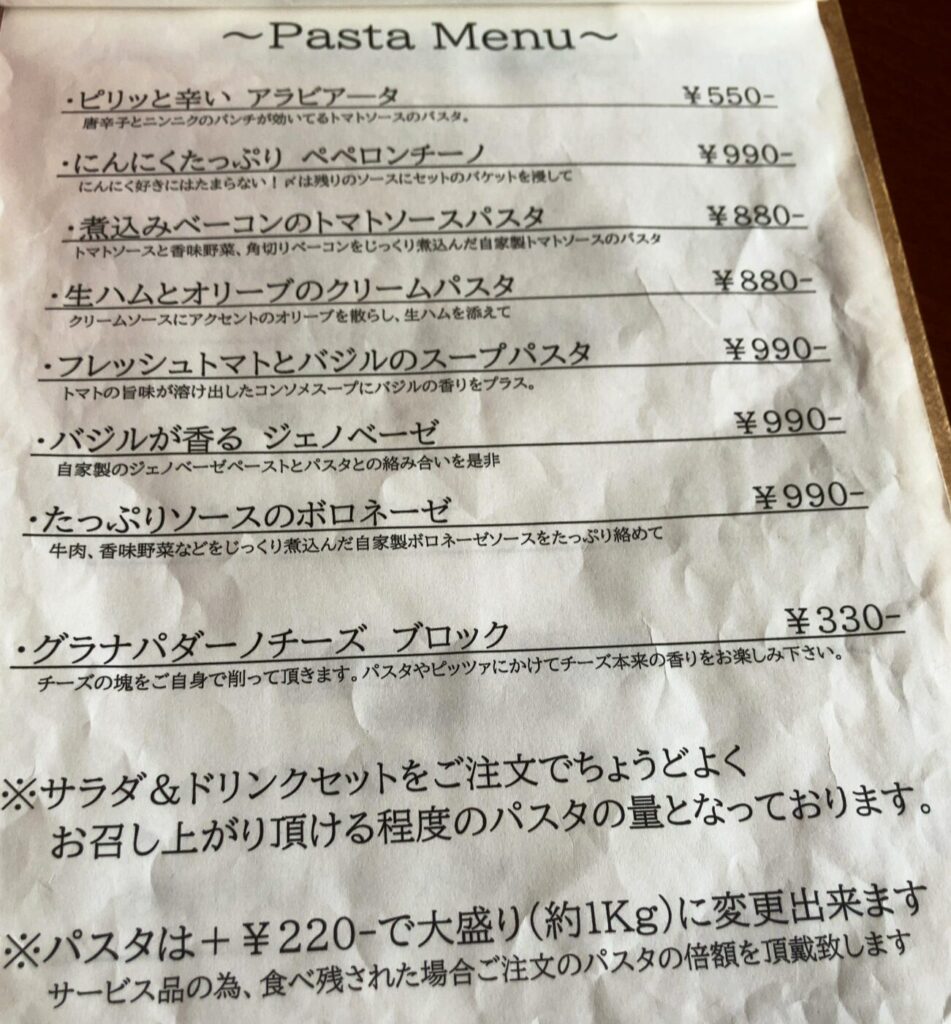 ～Pasta Menu～
・ピリッと辛い アラビアータ ￥550-
唐辛子とニンニクのパンチが効いてるトマトソースのパスタ。
・にんにくたっぷり ペペロンチーノ ￥990-
にんにく好きにはたまらない！〆は残りのソースにセットのバケットを浸して
・煮込みベーコンのトマトソースパスタ ￥880-
トマトソースと香味野菜、角切りベーコンをじっくり煮込んだ自家製トマトソースのパスタ
・生ハムとオリーブのクリームパスタ ￥880-
クリームソースにアクセントのオリーブを散らし、生ハムを添えて
・フレッシュトマトとバジルのスープパスタ ￥990-
トマトの旨味が溶け出したコンソメスープにバジルの香りをプラス。
・バジルが香る ジェノベーゼ ￥990-
自家製のジェノベーゼペーストとパスタとの絡み合いを是非
・たっぷりソースのボロネーゼ ￥990-
牛肉、香味野菜などをじっくり煮込んだ自家製ボロネーゼソースをたっぷり絡めて
・グラナパダーノチーズ ブロック ￥330-
チーズの塊をご自身で削って頂きます。パスタやピッツァにかけてチーズ本来の香りをお楽しみ下さい。
※サラダ＆ドリンクセットをご注文でちょうどよく
お召し上がり頂ける程度のパスタの量となっております。
※パスタは＋￥220-で大盛り(約1Kg)に変更出来ます
サービス品の為、食べ残された場合ご注文のパスタの倍額を頂戴致します